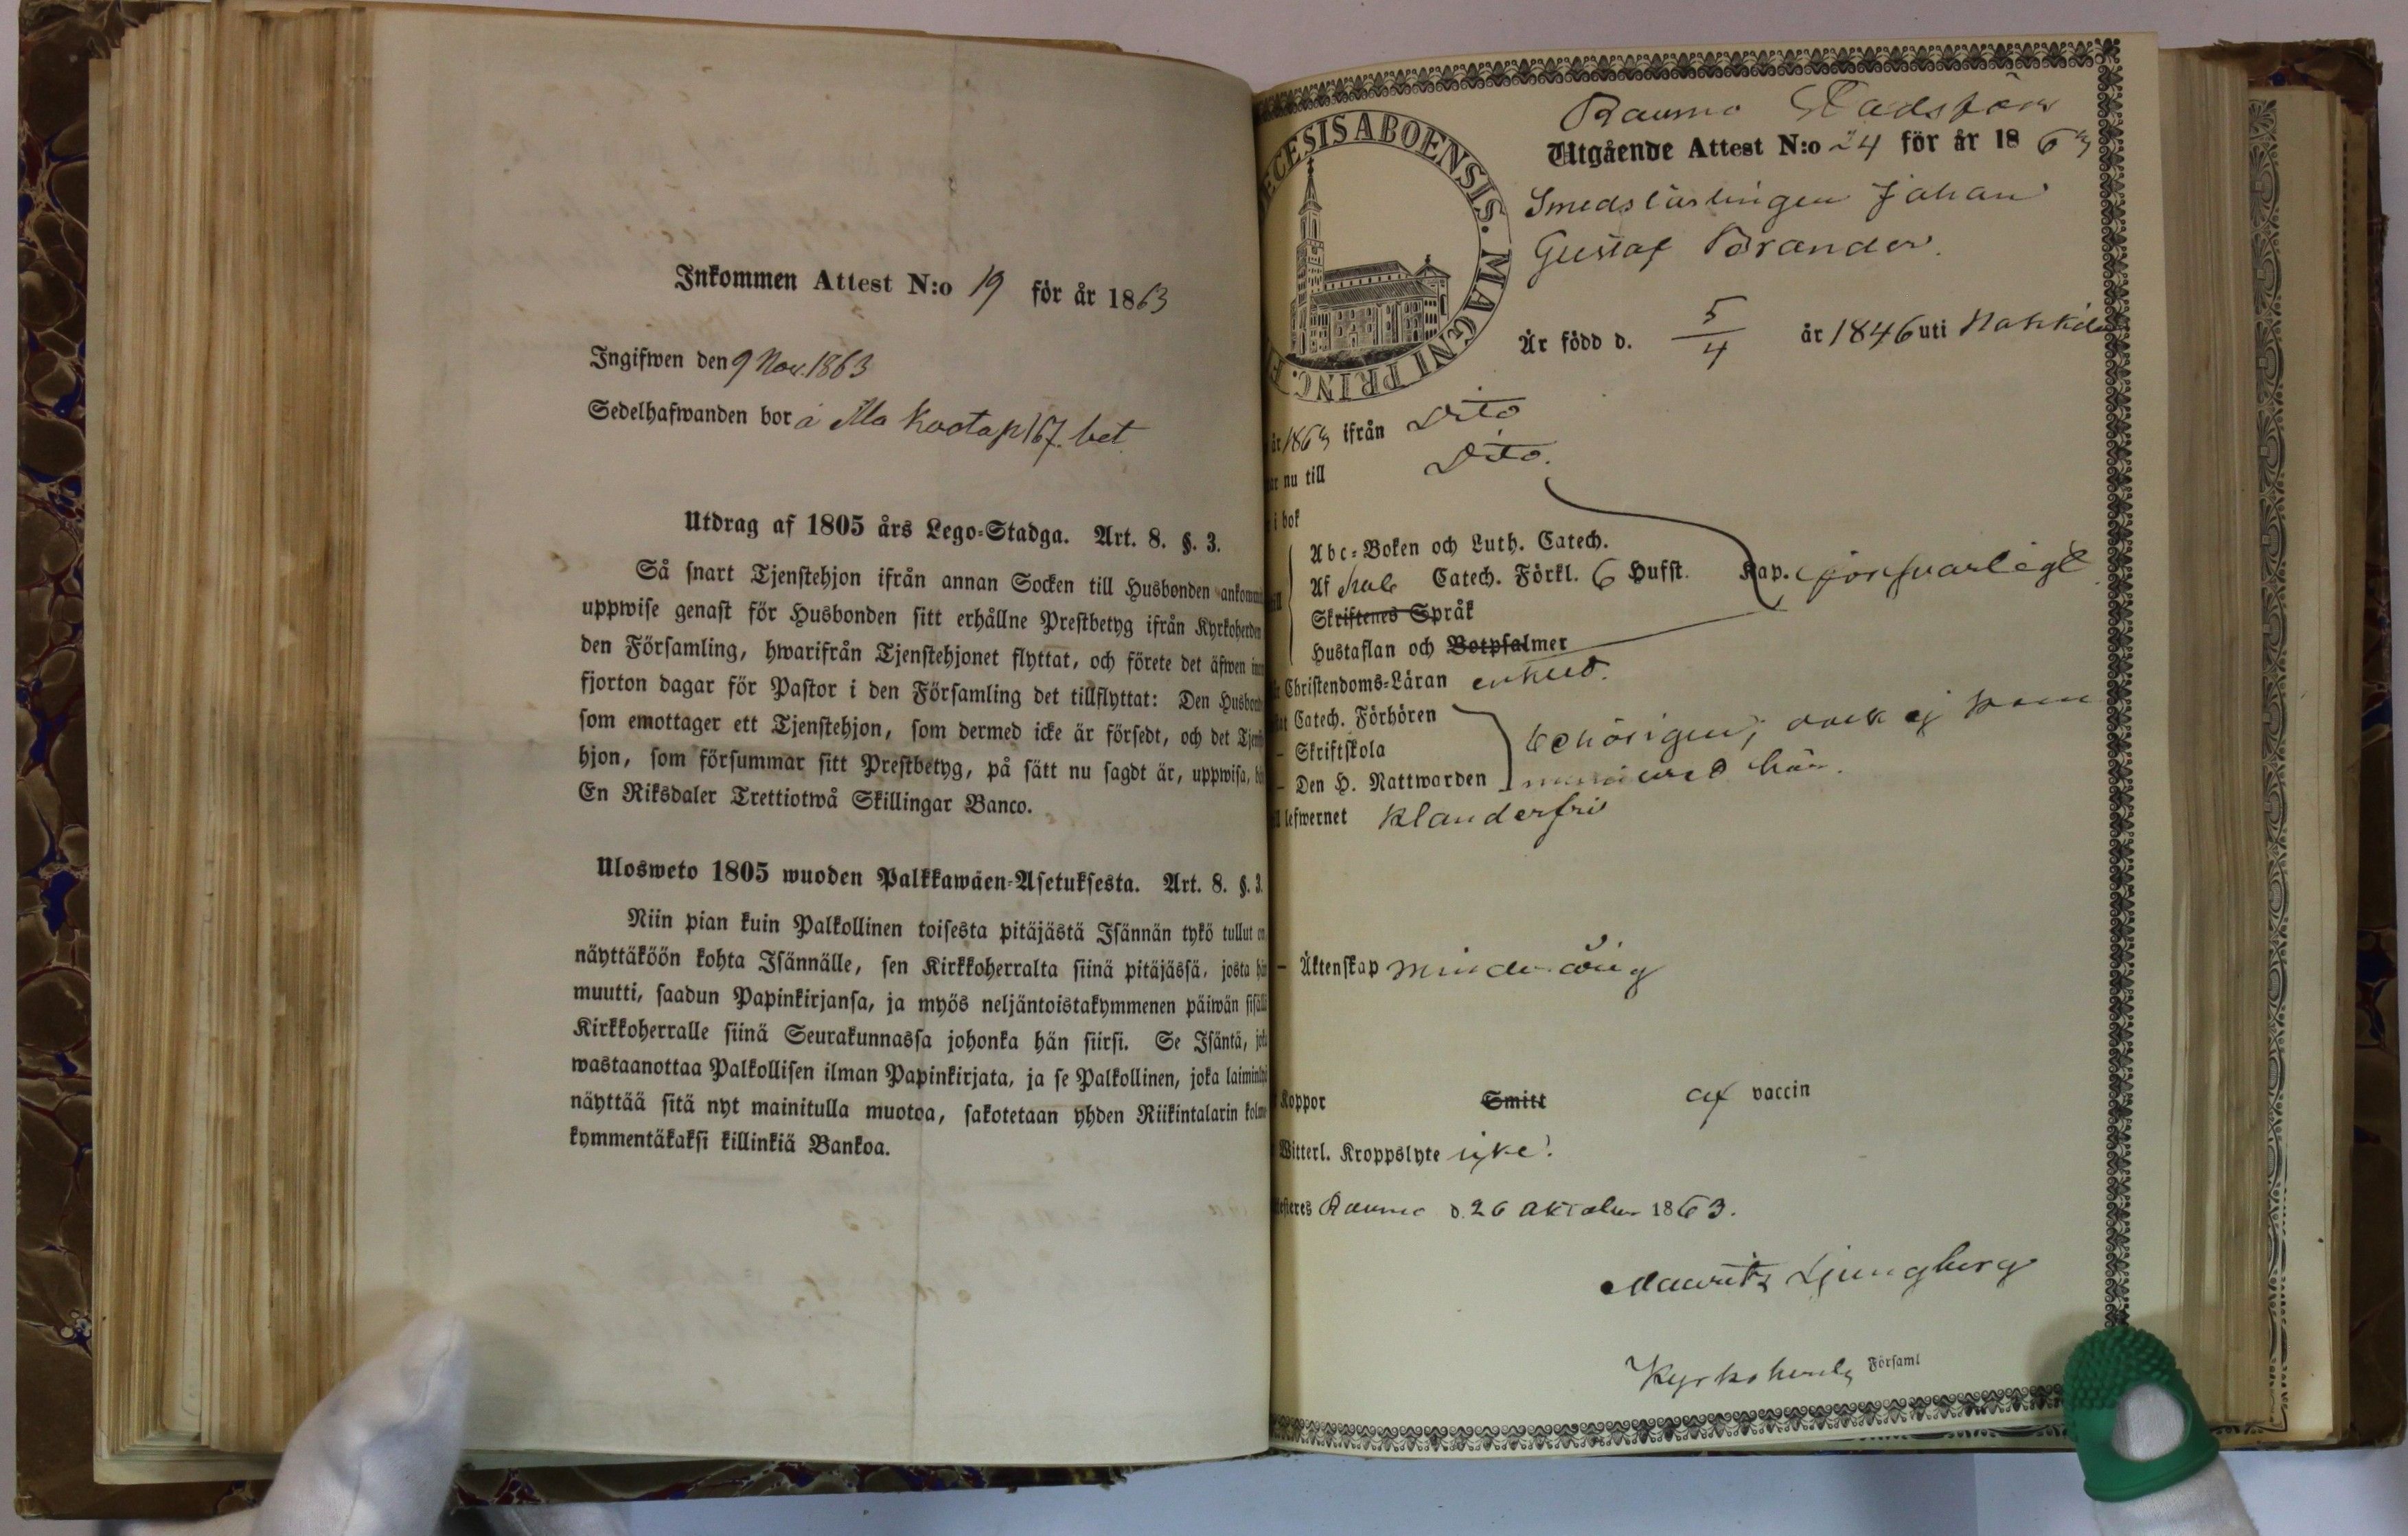 Inkommen Attest N:o 19 för år 1863
Ingifwen den 9 Nov. 1863
Sedelhafwanden bor å Ala Kaota p 167. bet.
Utdrag af 1805 års Lego-Stadga. Art. 8. §. 3.
Så snart Tjenstehjon ifrån annan Socken till Husbonden ankomm
uppwise genast för Husbonden sitt erhållne Prestbetyg ifrån Kyrkoherden
den Församling, hwarifrån Tjenstehjonet flyttat, och förete det äfwen inn
fjorton dagar för Pastor i den Församling det tillflyttat: Den Husbond
som emottager ett Tjenstehjon, som dermed icke är försedt, och det Tjenst
hjon, som försummar sitt Prestbetyg, på sätt nu sagdt är, uppwisa, bö
En Riksdaler Trettiotwå Skillingar Banco.
Ulosweto 1805 wuoden Palkkawäen-Asetuksesta. Art. 8. §. 3.
Niin pian kuin Palkollinen toisesta pitäjästä Isännän tykö tullut on
näyttäköön kohta Isännälle, sen Kirkkoherralta siinä pitäjässä, josta hän
muutti, saadun Papinkirjansa, ja myös neljäntoistakymmenen päiwän sisällä
Kirkkoherralle siinä Seurakunnassa johonka hän siirsi. Se Isäntä, joka
wastaanottaa Palkollisen ilman Papinkirjata, ja se Palkollinen, joka laiminlyö
näyttää sitä nyt mainitulla muotoa, sakotetaan yhden Riikintalarin kolme
kymmentäkaksi killinkiä Bankoa.
ECESIS ABOENSIS. MAGNI PRINC. F
Raumo Stadsförs
Utgående Attest N:o 24 för år 1863
Smedslärlingen Johan
Gustaf Brander.
Är född d. 5/4 år 1846 uti Nakkila
år 1863 ifrån Dito
ar nu till Dito.
i bok
Abc-Boken och Luth. Catech.
Af hela Catech. Förkl. 6 Hufst. Kap. försvarligt
Skriftenes Språk
Hustaflan och Botpsalmer
Christendoms-Läran enkel.
Catech. Förhören
– Skriftskola behörigen, dock ej kom
– Den H. Nattwarden municerad här.
lefwernet klanderfri
– Äktenskap minderårig
Koppor Smitt af vaccin
Witterl. Kroppslyte icke!
esteres Raumo d. 26 Oktober 1863.
Mauritz Ljungberg
Kyrkoherde Församl